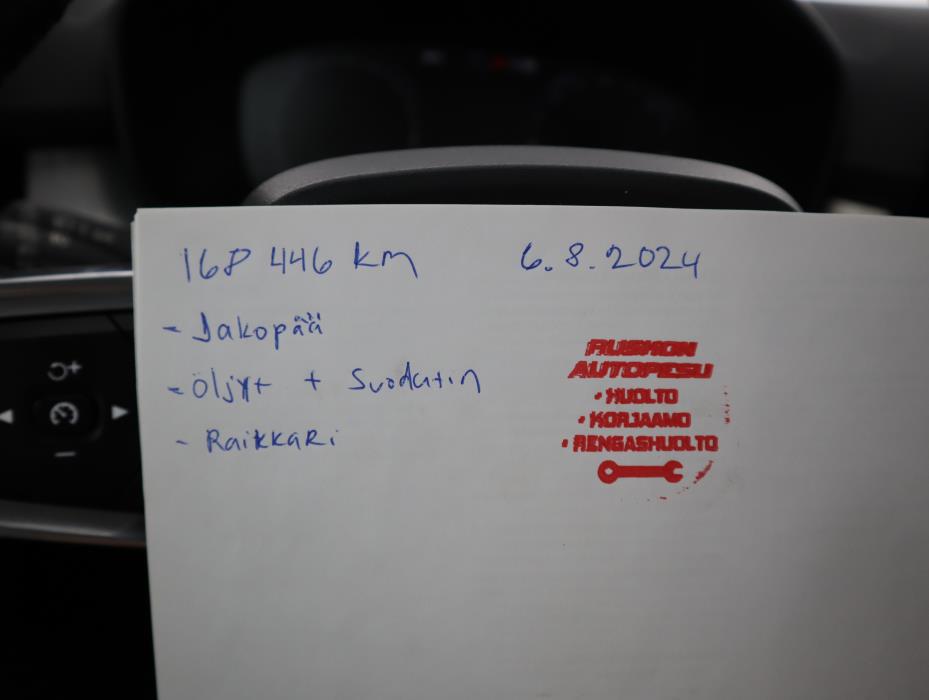 168 446 km 6.8.2024
- Jakopää
- Öljyt + Suodatin
- Raikkari
RUSKON
AUTOPESU
• HUOLTO
• KORJAAMO
• RENGASHUOLTO